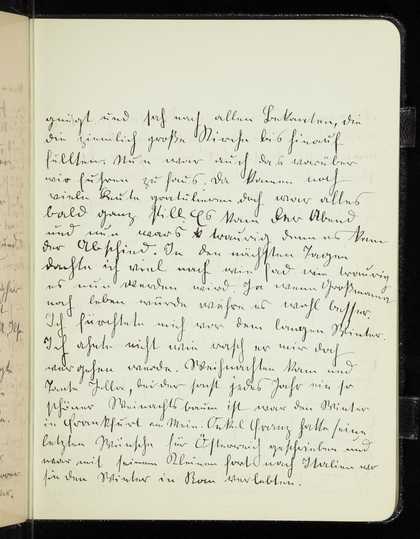 genügt und sah nach allen Bekannten, die
die ziemlich große Kirche bis hinauf
füllten. Nun war auch das vorüber
wir fuhren zu Haus. Da kamen noch
viele Leute gratulieren doch war alles
bald ganz still. Es kam der Abend
und nun war's traurig denn es kam
der Abschied. In den nächsten Tagen
dachte ich viel nach wie und wie traurig
es nun werden wird. Ja wenn Großmama
noch leben würde wäre es wohl besser.
Ich fürchtete mich vor dem langen Winter.
Ich ahnte nicht wie rasch er mir doch
vergehen werde. Weihnachten kam und
Tante Bella, bei der sonst jedes Jahr ein so
schöner Weinachtsbaum ist war den Winter
in Frankfurt am Mein. Onkel Franz hatte seine
letzten Wünsche für Österreich geschrieben und
war mit seinem Kleinen fort nach Italien wo
sie den Winter in Rom verlebten.